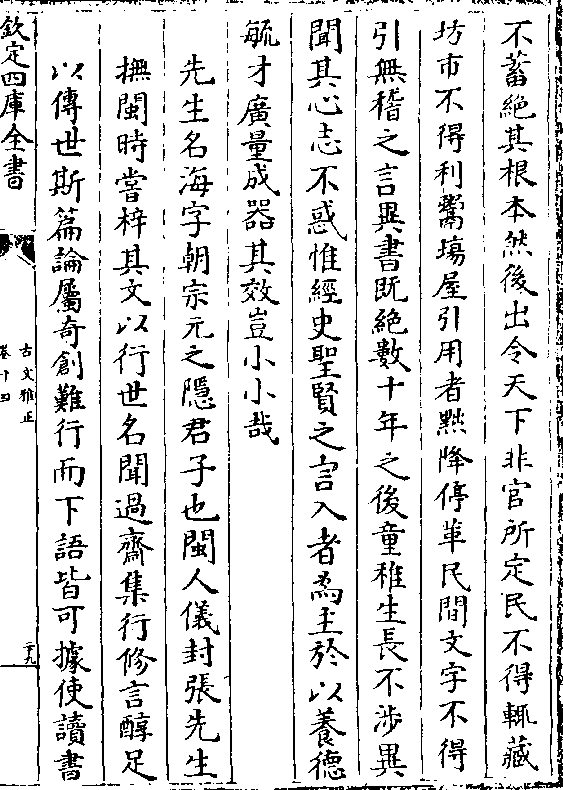 不蓄絶其根本然後出令天下非官所定民不得輒藏
坊市不得利鬻塲屋引用者黜降停革民間文字不得
引無稽之言異書既絶數十年之後童稚生長不涉異
聞其心志不惑惟經史聖賢之言入者為主於以養德
毓才廣量成器其效豈小小哉
先生名海字朝宗元之隱君子也閩人儀封張先生
撫閩時嘗梓其文以行世名聞過齋集行修言醇足
以傳世斯篇論屬奇創難行而下語皆可據使讀書
欽定四庫全書
古文雅正
卷十四
二十九